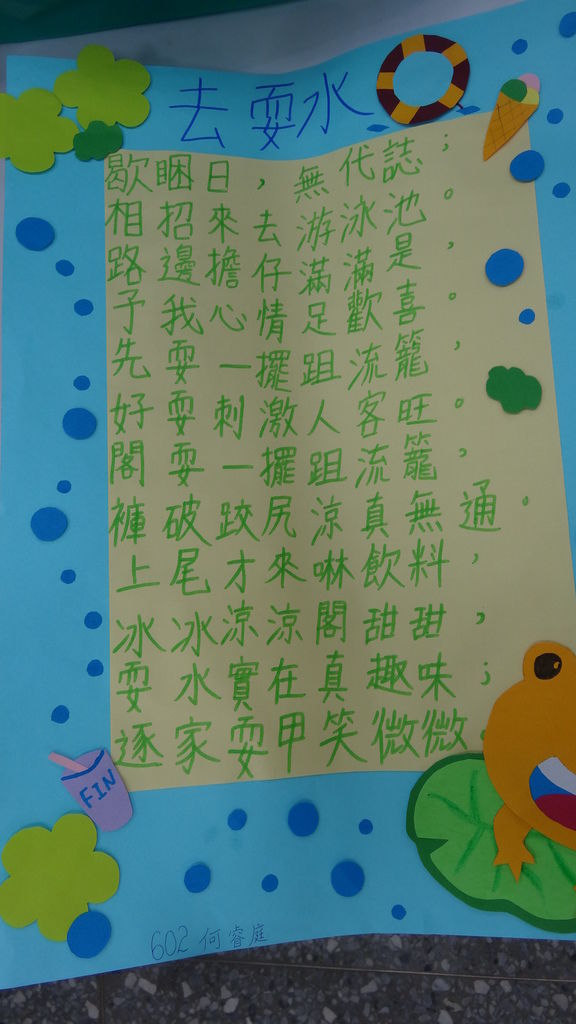 去耍水
歇睏日，無代誌；
相招來去游泳池。
路邊擔仔滿滿是，
予我心情足歡喜。
先耍一擺跙流籠，
好耍刺激人客旺。
閣耍一擺跙流籠，
褲破跤尻涼真無通。
上尾才來啉飲料，
冰冰涼涼閣甜甜，
耍水實在真趣味；
逐家耍甲笑微微。
FIN
602 何睿庭